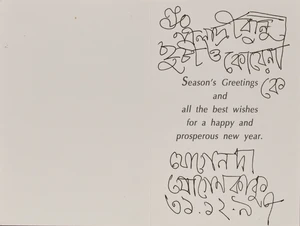 ও কোয়েলা
কে
Season's Greetings
and
all the best wishes
for a happy and
prosperous new year.
যোগেনদা
যোগেনকাকু
৩১.১২.৯৭